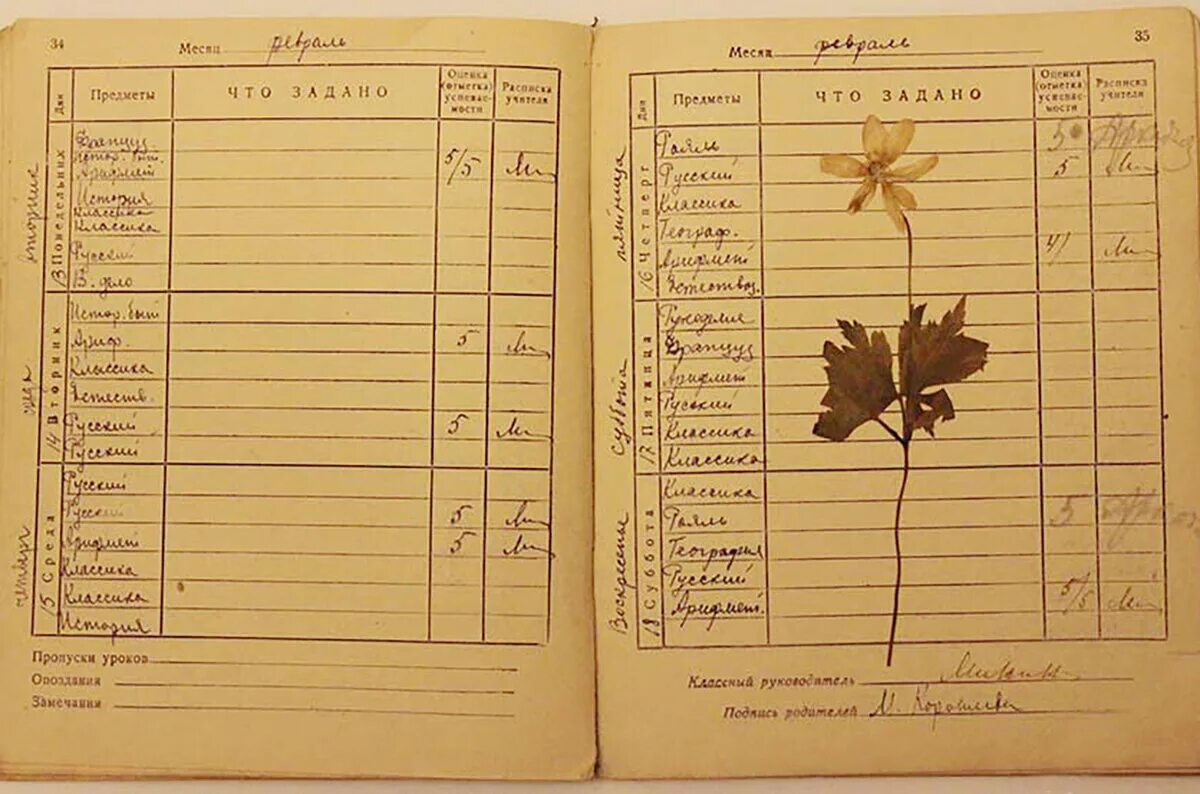 34
Месяц февраль
Дни Предметы ЧТО ЗАДАНО Оценка (отметка) успеваемости Расписка учителя
вторник
13 Понедельник
Француз.
Истор. быт.
Арифмет 5/5 Ми
История
Классика
Классика
Русский
В. дело
среда
14 Вторник
Истор. быт
Ариф. 5 Ми
Классика
Естеств.
Русский 5 Ми
Русский
четверг
15 Среда
Русский
Русский 5 Ми
Арифмет 5 Ми
Классика
Классика
История
Пропуски уроков
Опоздания
Замечания
35
Месяц февраль
Дни Предметы ЧТО ЗАДАНО Оценка (отметка) успеваемости Расписка учителя
пятница
16 Четверг
Рояль 5
Русский 5 Ми
Классика
Географ. 4/ Ми
Арифмет
Естествоз.
суббота
17 Пятница
Рукоделия
Француз
Арифмет
Русский
Классика
Классика
Воскресенье
18 Суббота
Классика
Рояль 5
География
Русский
Арифмет. 5/5 Ми
Классный руководитель
Подпись родителей М.